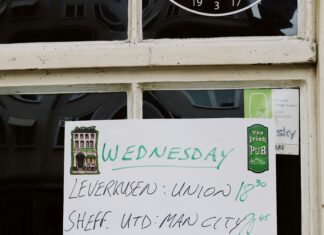 19 3 17
sky
The
Irish
PUB
WEDNESDAY
LEVERKUSEN : UNION 18 30
SHEFF. UTD : MAN CITY